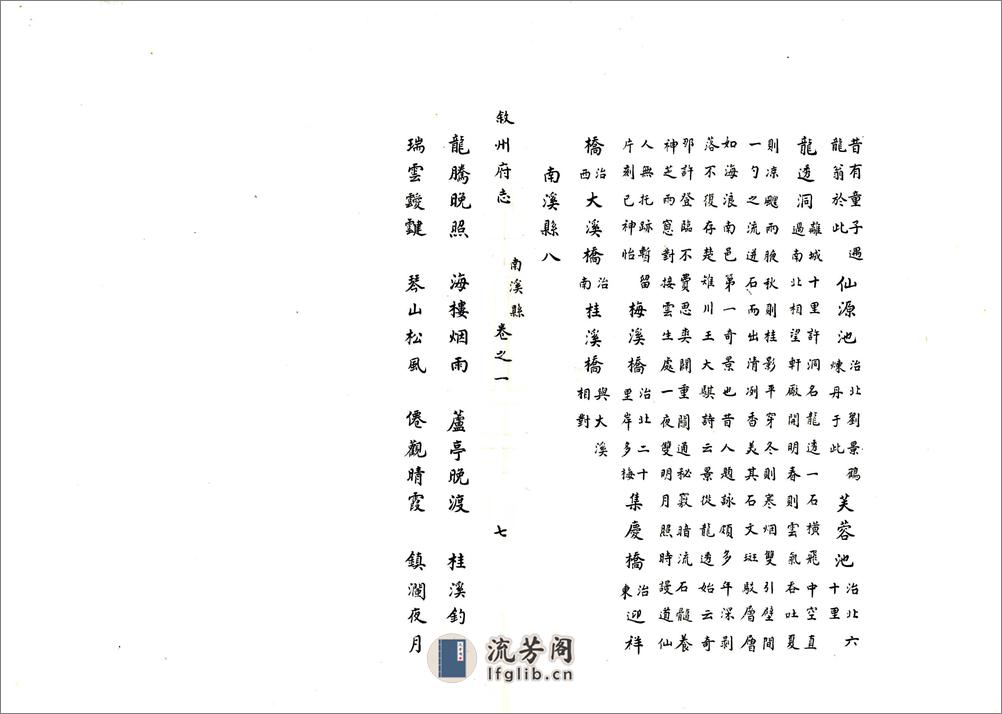 昔有童子遇龍翁於此 仙源池 治北劉景鶴煉丹于此 芙蓉池 治北六十里
龍透洞 離城十里許洞名龍透一石橫飛中空直
過南北相望軒厰開明春則雲氣吞吐夏
則凉颸兩腋秋則桂影平穿冬則寒烟雙引壁間
一勺之流迸石而出清冽香美其石文斑駁層層
如海浪南邑第一奇景也昔人題詠頗多年深剥
落不復存楚雄川王大騏詩云景從龍透始云奇
那許登臨不費思奭闢重關通秘竅暗流石髓養
神芝雨窻對接雲生處一夜雙明月照時謾道仙
人無托跡暫留片刻已神怡 梅溪橋 治北二十里岸多梅 集慶橋 治東 迎祥
橋 治西 大溪橋 治南 桂溪橋 與大溪相對
南溪縣八
敘州府志 南溪縣 卷之一 七
龍騰晚照 海樓烟雨 蘆亭晚渡 桂溪釣
瑞雲靉靆 琴山松風 僊觀晴霞 鎮瀾夜月
流芳阁
lfglib.cn